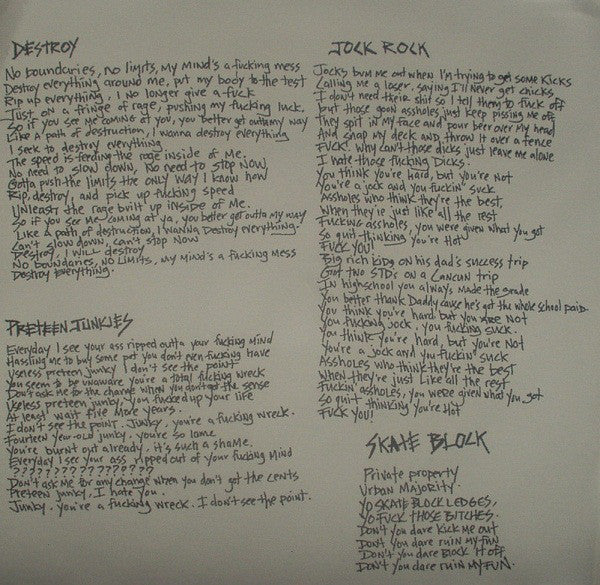 DESTROY
No boundaries, no limits, my mind's a fucking mess
Destroy everything around me, put my body to the test
Rip up everything, I no longer give a fuck
Just on a fringe of rage, pushing my fucking luck.
So if you see me coming at you, you better get outta my way
Like a path of destruction, I wanna destroy everything
I seek to, destroy everything
The speed is feeding the rage inside of me.
No need to slow down, No need to STOP NOW
Gotta push the limits the ONLY WAY I know how
Rip, destroy, and pick up fucking speed
Unleast the rage built up inside of me.
So if you see me coming at ya, you better get outta my way
Like a path of destruction, I WANNA DESTROY everything.
Can't slow down, can't stop Now
Destroy, I will destroy
No boundaries, NO LIMITS, my mind's a fucking mess
Destroy Everything.
PRETEEN JUNKIES
Everyday I see your ass ripped outta your fucking mind
Hassling me to buy some pot you don't even fucking have
Useless preteen junky I don't see the point
You seem to be unaware you're a total fucking wreck
Don't ask me for the change when you don't got the sense
Useless preteen junky, you fucked up your life
At least wait five more years.
I don't see the point. Junky, you're a fucking wreck.
Fourteen year-old junky, you're so lame
You're burnt out already, it's such a shame.
Everyday I see your ass ripped out of your fucking mind
???????????????
Don't ask me for any change when you don't got the cents
Preteen junky, I hate you.
Junky, you're a fucking wreck. I don't see the point.
JOCK ROCK
Jocks bum me out when I'm trying to get some kicks
Calling me a loser, saying I'll never get chicks
I don't need their shit so I tell them to fuck off
but those goon assholes just keep pissing me off
they spit in my face and pour beer over my head
And snap my deck and throw it over a fence
FUCK! Why can't those dicks just leave me alone
I hate those fucking Dicks.
You think you're hard, but you're not
You're a jock and you fuckin' suck.
Assholes who think they're the best,
When they're just like all the rest
Fucking assholes, you were given what you got
So quit thinking you're hot
FUCK YOU!
Big rich kids on his dad's success trip
Got two STD's on a Cancun trip
In highschool you always made the grade
You better thank Daddy cause he's got the whole school paid.
You think you're hard but you are not
You fucking jock, you fucking suck.
You think you're hard, but you're Not
You're a jock and you fuckin' suck
Assholes who think they're the best
When they're just like all the rest
Fuckin' assholes, you were given what you got
So quit thinking you're Hot
FUCK YOU!
SKATE BLOCK
Private property
Urban Majority.
Yo SKATE BLOCK LEDGES,
Yo FUCK THOSE BITCHES.
Don't you dare kick me out
Don't you dare ruin my fun
Don't you dare Block it off
Don't you dare ruin MY FUN.